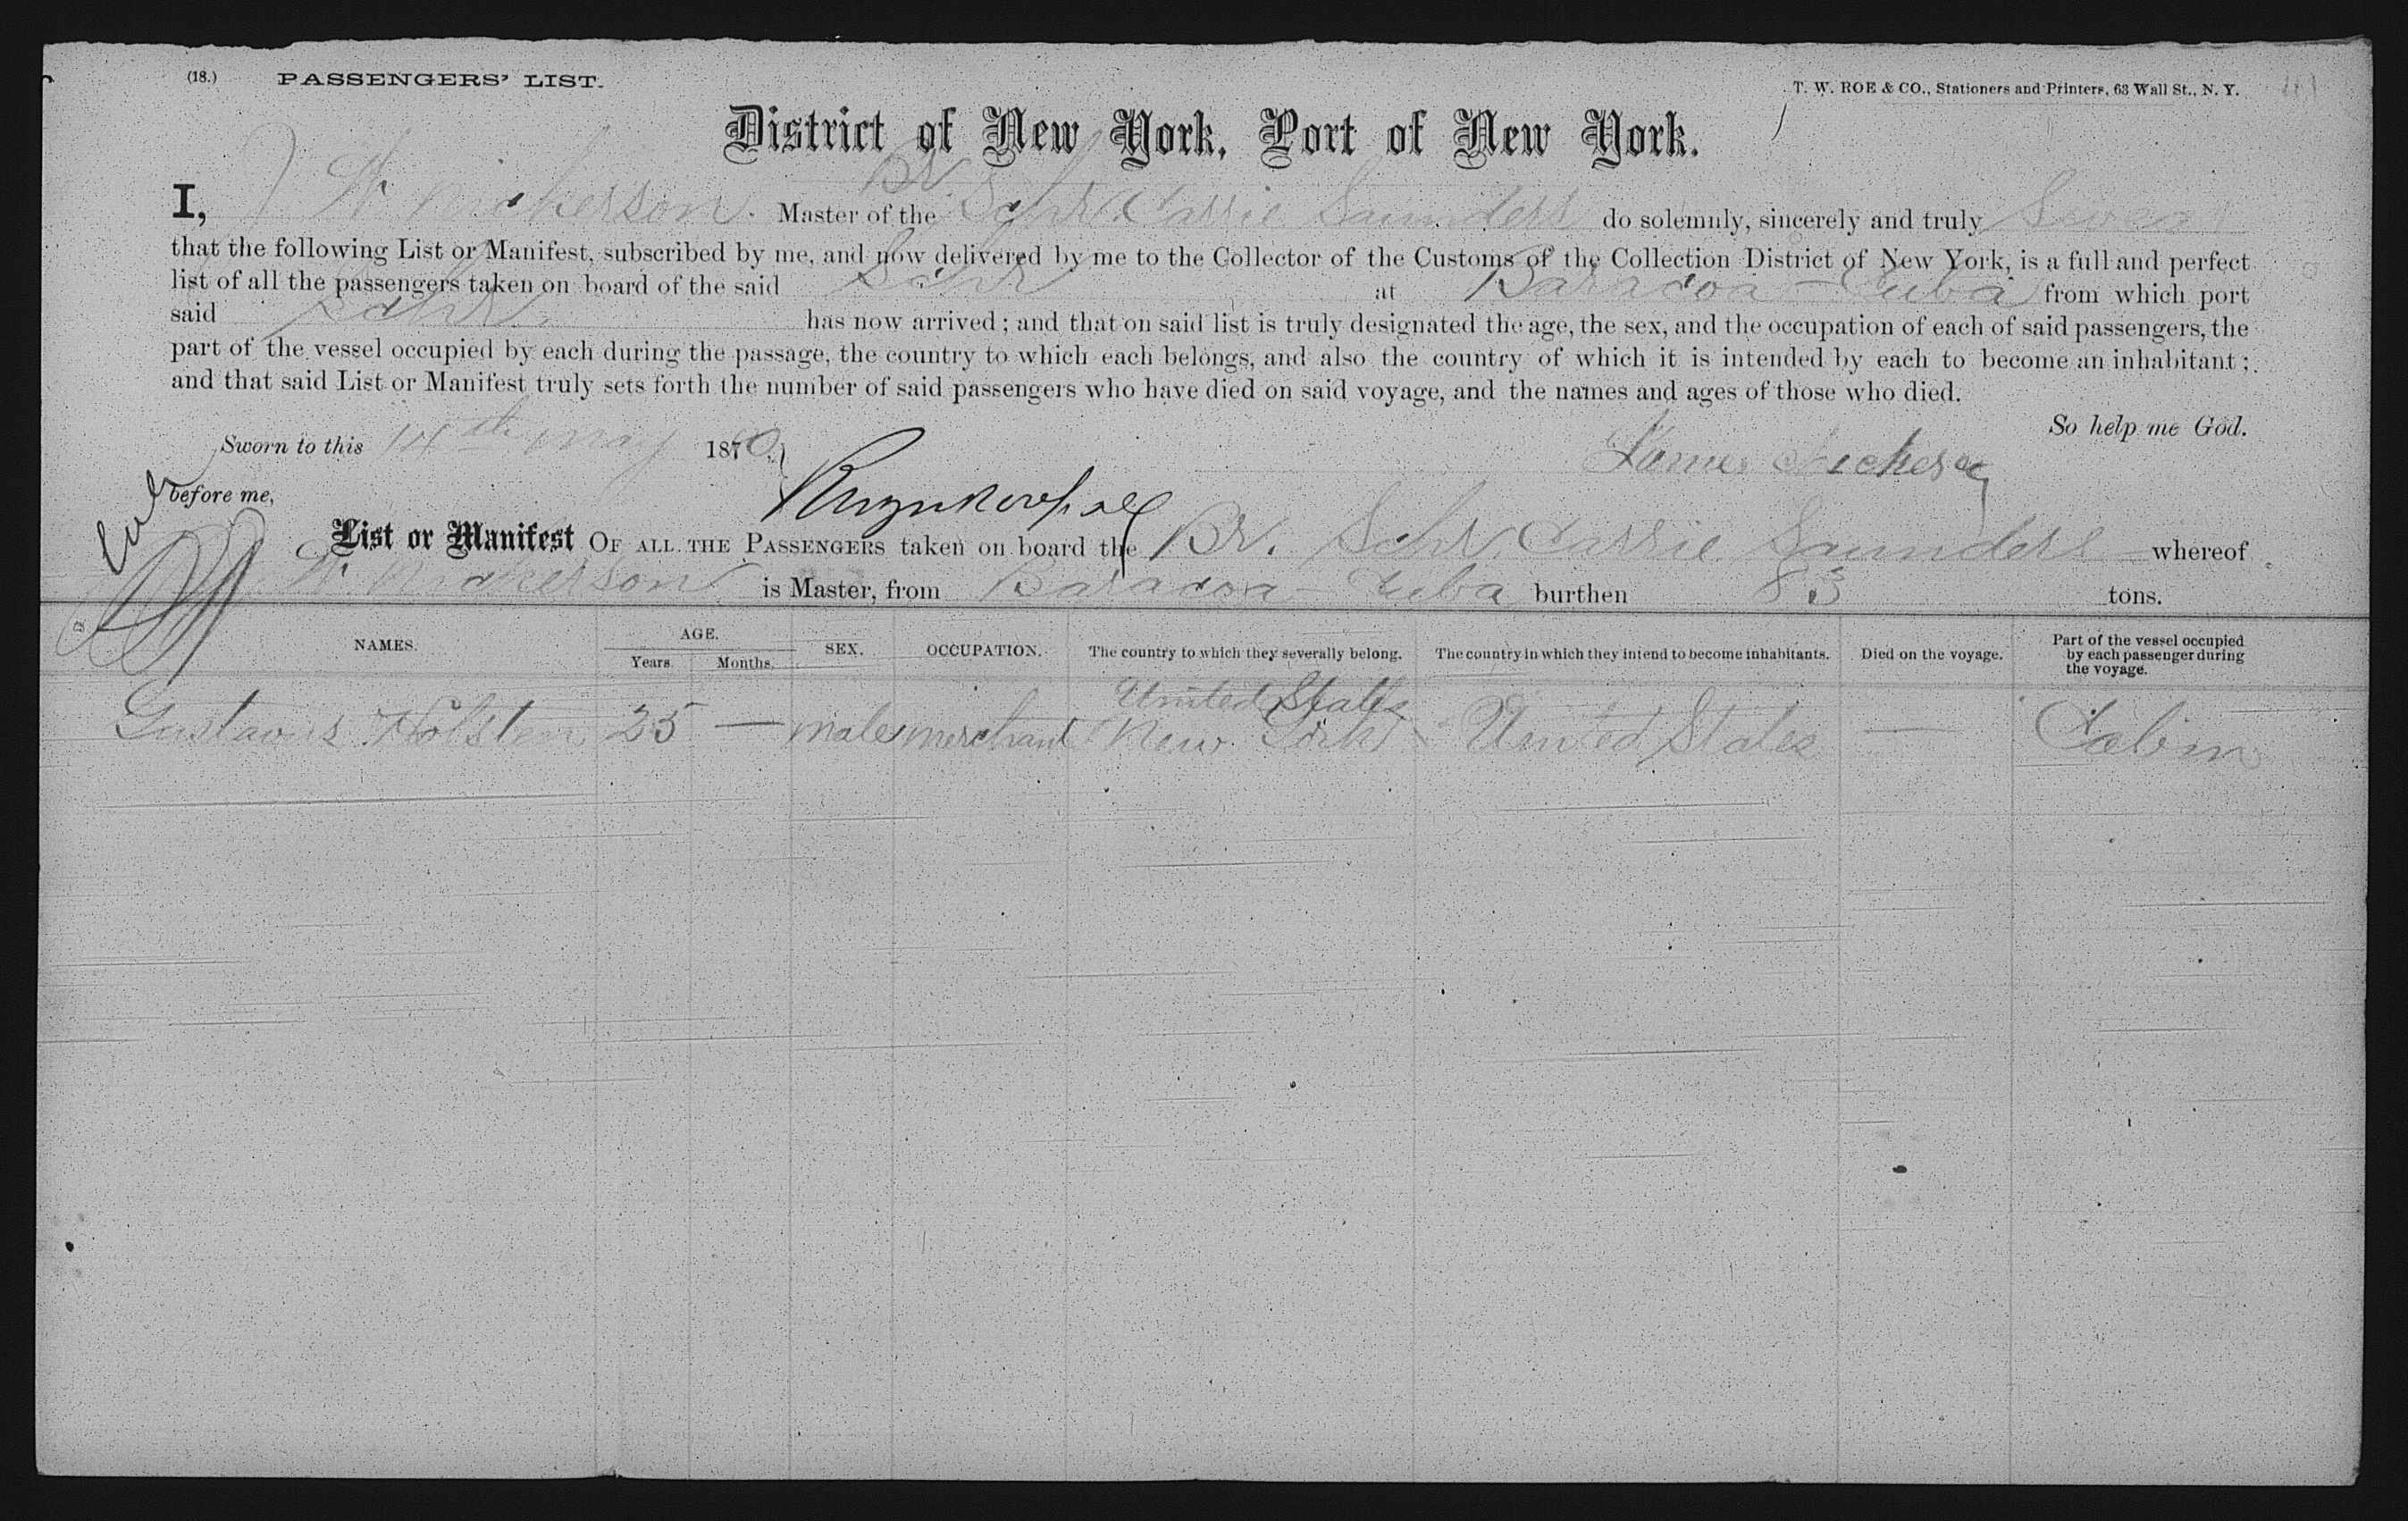 (18.) PASSENGERS' LIST.
T. W. ROE & CO., Stationers and Printers, 63 Wall St., N. Y.
District of New York, Port of New York.
Br.
I, J W Nickerson. Master of the Schr. Carrie Saunders do solemnly, sincerely and truly Swear
that the following List or Manifest, subscribed by me, and now delivered by me to the Collector of the Customs of the Collection District of New York, is a full and perfect
list of all the passengers taken on board of the said Schr at Baracoa - Cuba from which port
said Schr. has now arrived; and that on said list is truly designated the age, the sex, and the occupation of each of said passengers, the
part of the vessel occupied by each during the passage, the country to which each belongs, and also the country of which it is intended by each to become an inhabitant;
and that said List or Manifest truly sets forth the number of said passengers who have died on said voyage, and the names and ages of those who died.
So help me God.
Sworn to this 14th may 1870 Nickerson
before me,
List or Manifest OF ALL THE PASSENGERS taken on board the Br. Schr. Carrie Saunders whereof
W. Nickerson is Master, from Baracoa - Cuba burthen 83 tons.
NAMES. AGE. Years. Months. SEX. OCCUPATION. The country to which they severally belong. The country in which they intend to become inhabitants. Died on the voyage. Part of the vessel occupied by each passenger during the voyage.
United States
Gustavus Holsten 25 — male merchant New York United States — Cabin